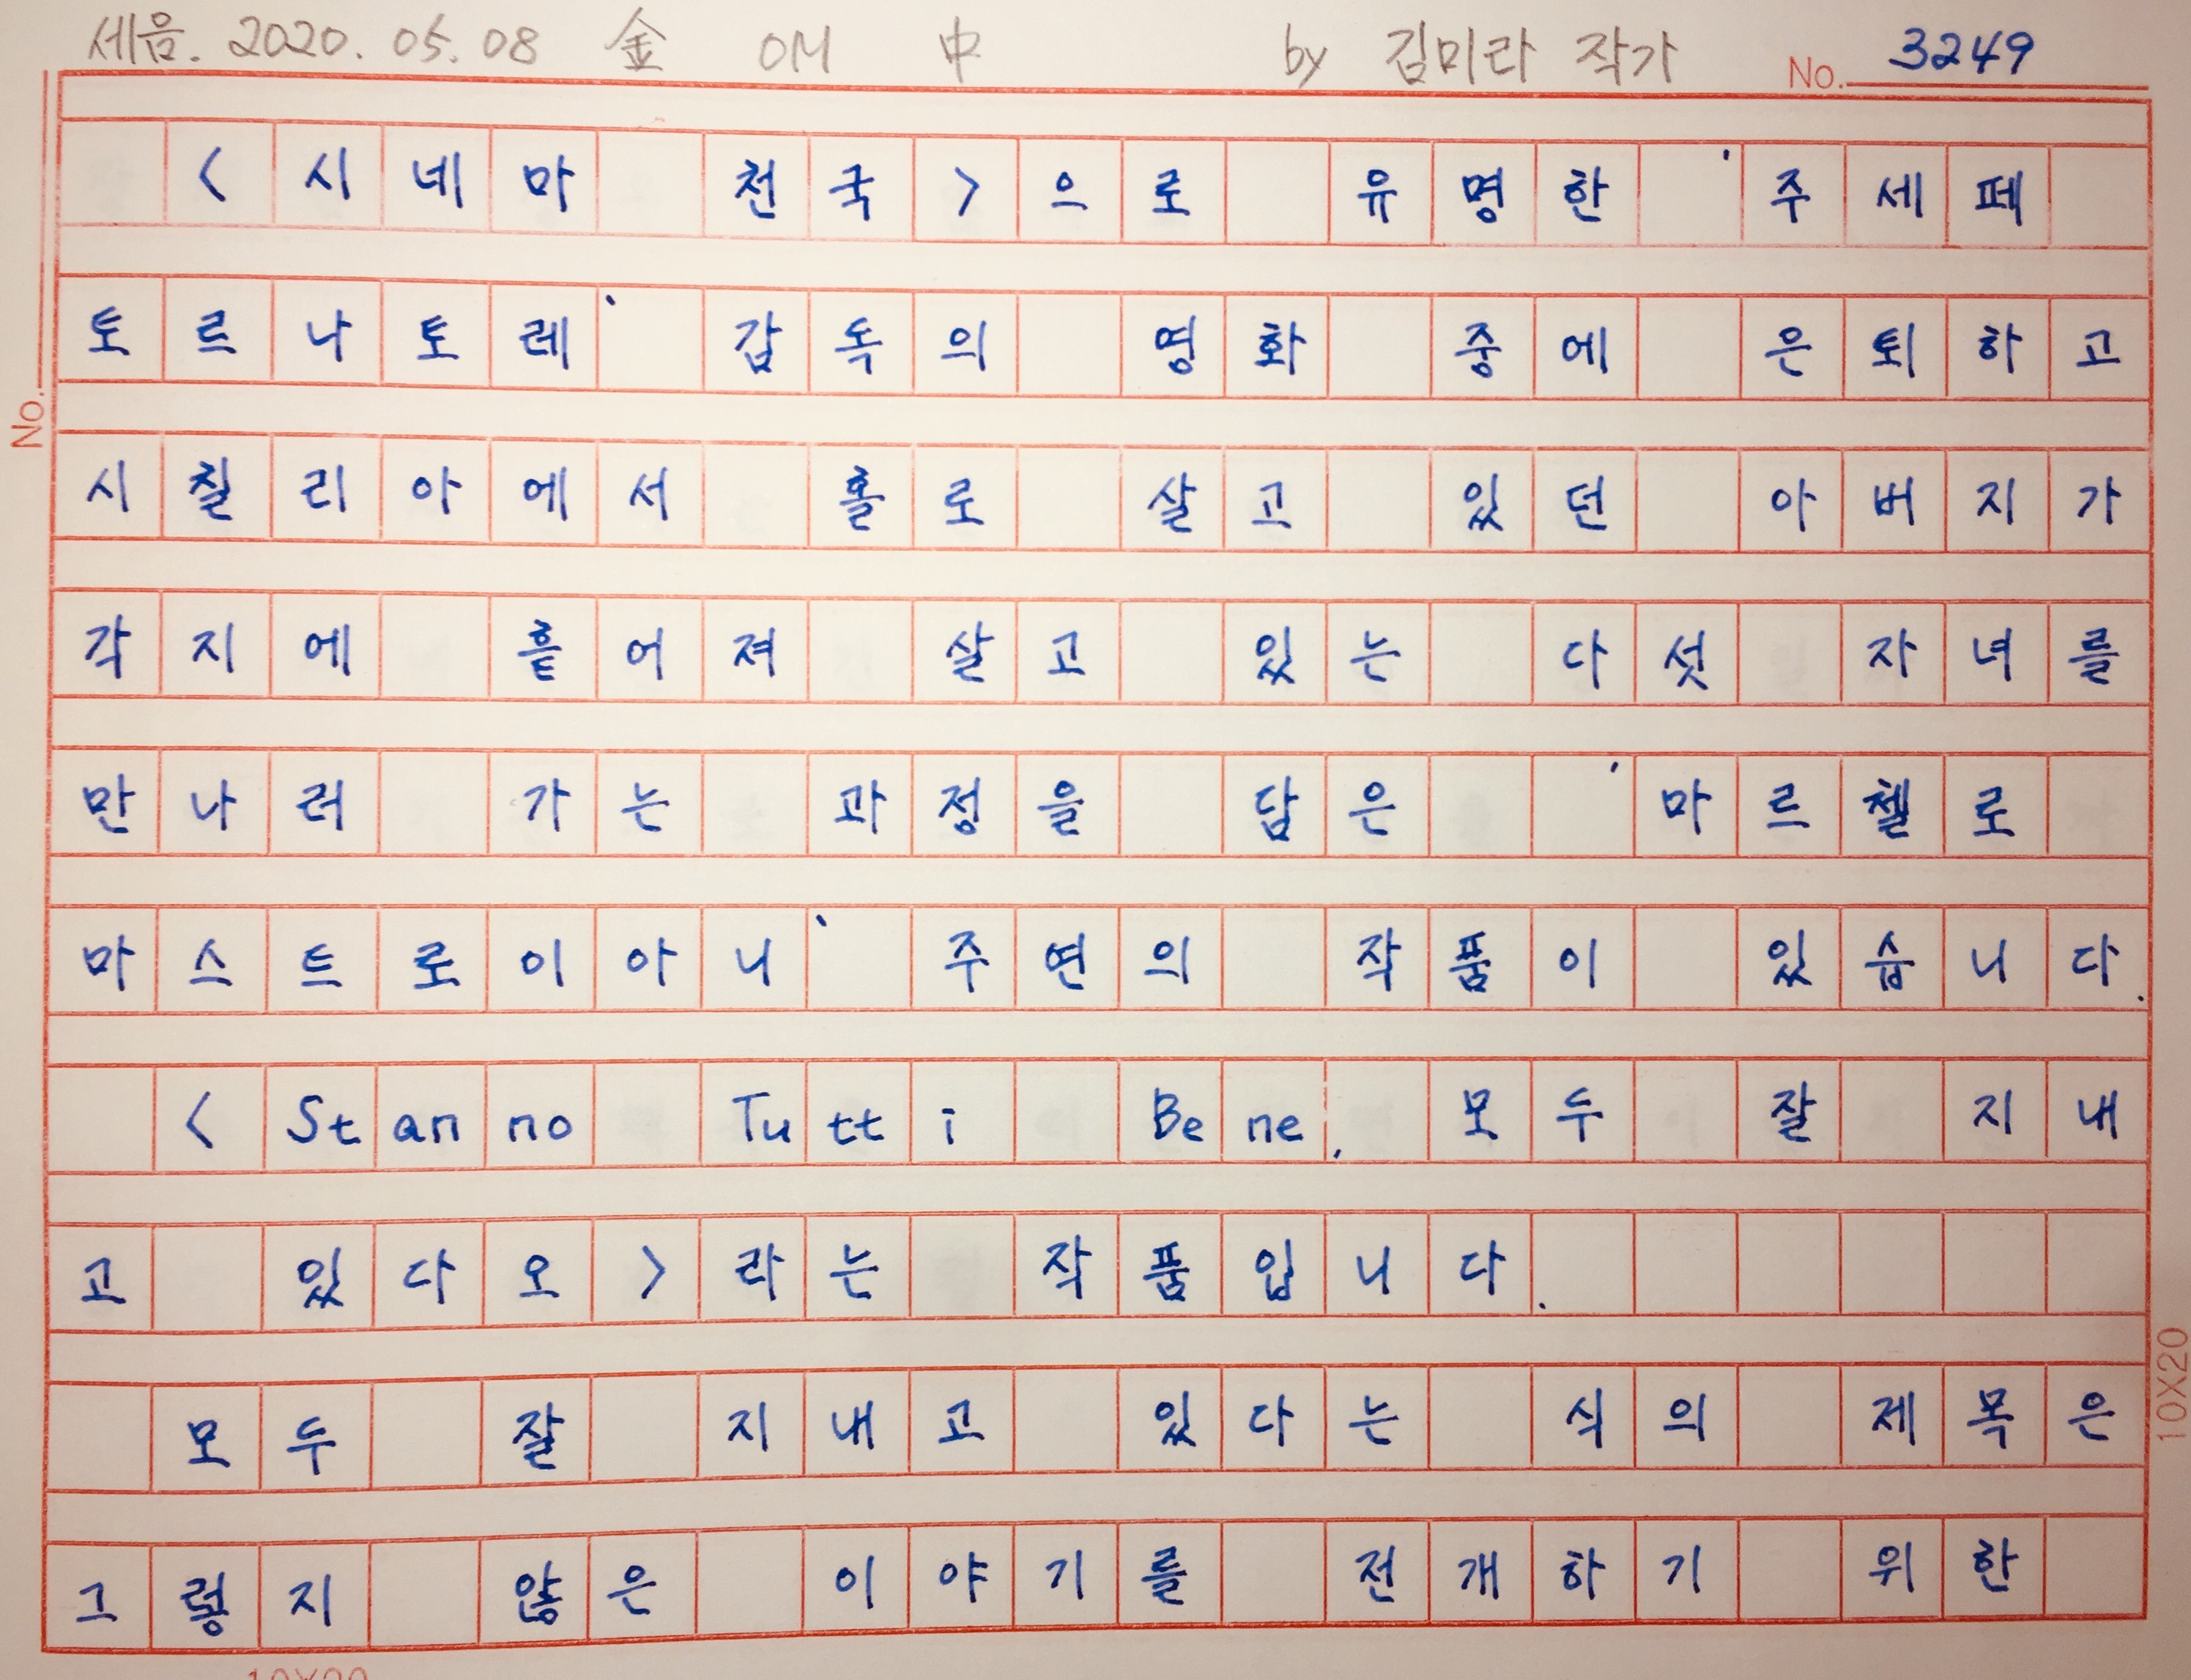 세음. 2020. 05. 08 金 OM 中 by 김미라 작가 No. 3249
<시네마 천국>으로 유명한 '주세페
토르나토레' 감독의 영화 중에 은퇴하고
시칠리아에서 홀로 살고 있던 아버지가
No.
각지에 흩어져 살고 있는 다섯 자녀를
만나러 가는 과정을 담은 '마르첼로
마스트로이아니' 주연의 작품이 있습니다.
<Stanno Tutti Bene, 모두 잘 지내
고 있다오>라는 작품입니다.
모두 잘 지내고 있다는 식의 제목은
그렇지 않은 이야기를 전개하기 위한
10X20
10X20